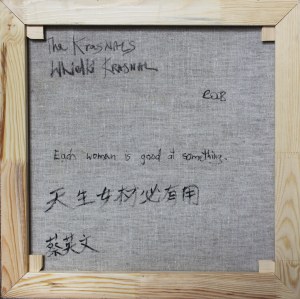 The Krasnals
Whielki Krasnal
Each woman is good at something.
天生女材必有用
蔡英文